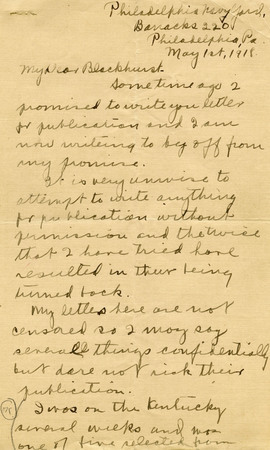 Philadelphia Navy Yard,
Barracks 220
Philadelphia, Pa
May 1st, 1918.
My dear Blackhurst.
Sometime ago I
promised to write you letter
for publication and I am
now writing to beg off from
my promise.
It is very unwise to
attempt to write anything
for publication without
permission and the twice
that I have tried have
resulted in their being
turned back.
My letters here are not
censored so I may say
several things confidentially
but dare not risk their
publication.
I was on the Kentucky
several weeks and was
one of five selected from